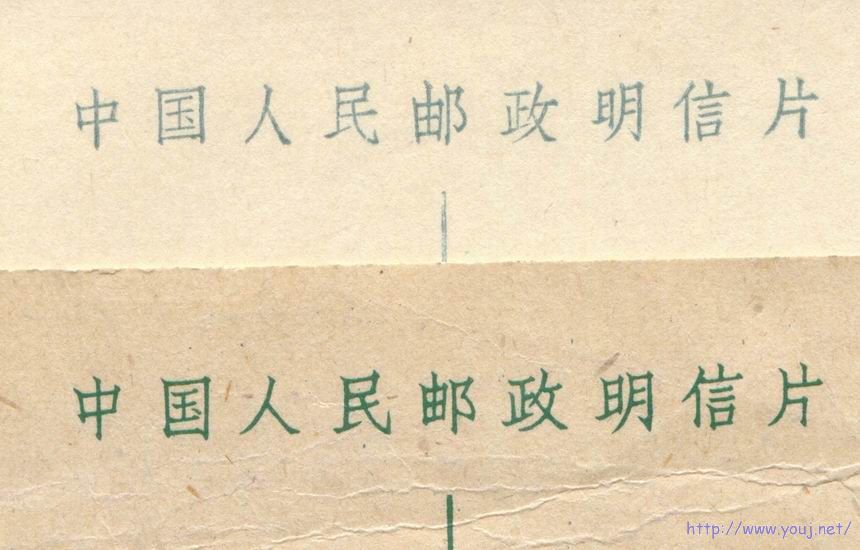 中国人民邮政明信片
中国人民邮政明信片
http://www.youj.net/